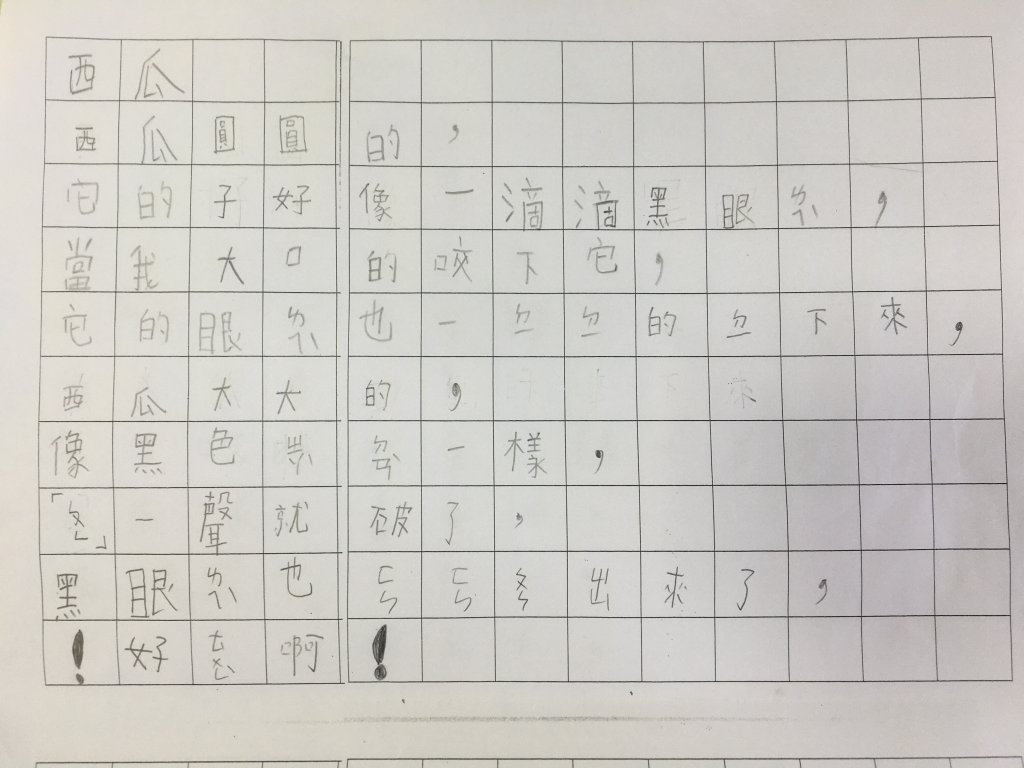 西瓜
西瓜圓圓的，
它的子好像一滴滴黑眼ㄌㄟˋ，
當我大口的咬下它，
它的眼ㄌㄟˋ也一ㄉㄧㄉㄧ的ㄉㄧ下來，
西瓜大大的，
像黑色ㄓㄚˋㄉㄢˋ一樣，
「ㄆㄥ」一聲就破了，
黑眼ㄌㄟˋ也ㄈㄣㄈㄣㄆㄣ出來了，
！好啊！